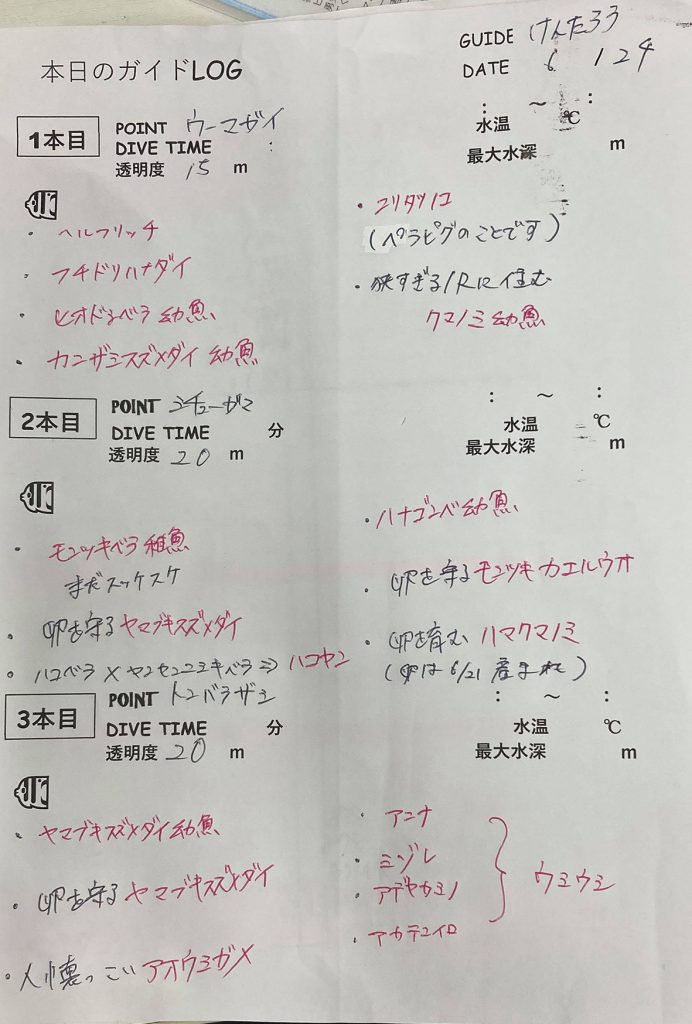 本日のガイドLOG
GUIDE けんた33
DATE 6 / 24
1本目
POINT ウーマガイ
DIVE TIME :
透明度 15 m
: ~ :
水温 ℃
最大水深 m
・ヘルフリッチ
・フチドリハナダイ
・ヒオドシベラ 幼魚
・カンザシスズメダイ 幼魚
・ニリタツノコ
(ペラピグのことです)
・狭すぎる1Rに住む
クマノミ幼魚
2本目
POINT シチューガマ
DIVE TIME 分
透明度 20 m
: ~ :
水温 ℃
最大水深 m
・モンツキベラ 稚魚
まだスッケスケ
・卵を守るヤマブキスズメダイ
・ハコベラ×ヤンセンニシキベラ⇒ハコヤン
・ハナゴンベ幼魚
・卵を守るモンツキカエルウオ
・卵を育む ハマクマノミ
(卵は6/21産まれ)
3本目
POINT トンバラザシ
DIVE TIME 分
透明度 20 m
: ~ :
水温 ℃
最大水深 m
・ヤマブキスズメダイ幼魚
・卵を守るヤマブキスズメダイ
・人懐っこいアオウミガメ
・アンナ
・ミゾレ
・アデヤカミノ
・アカテンイロ
ウミウシ